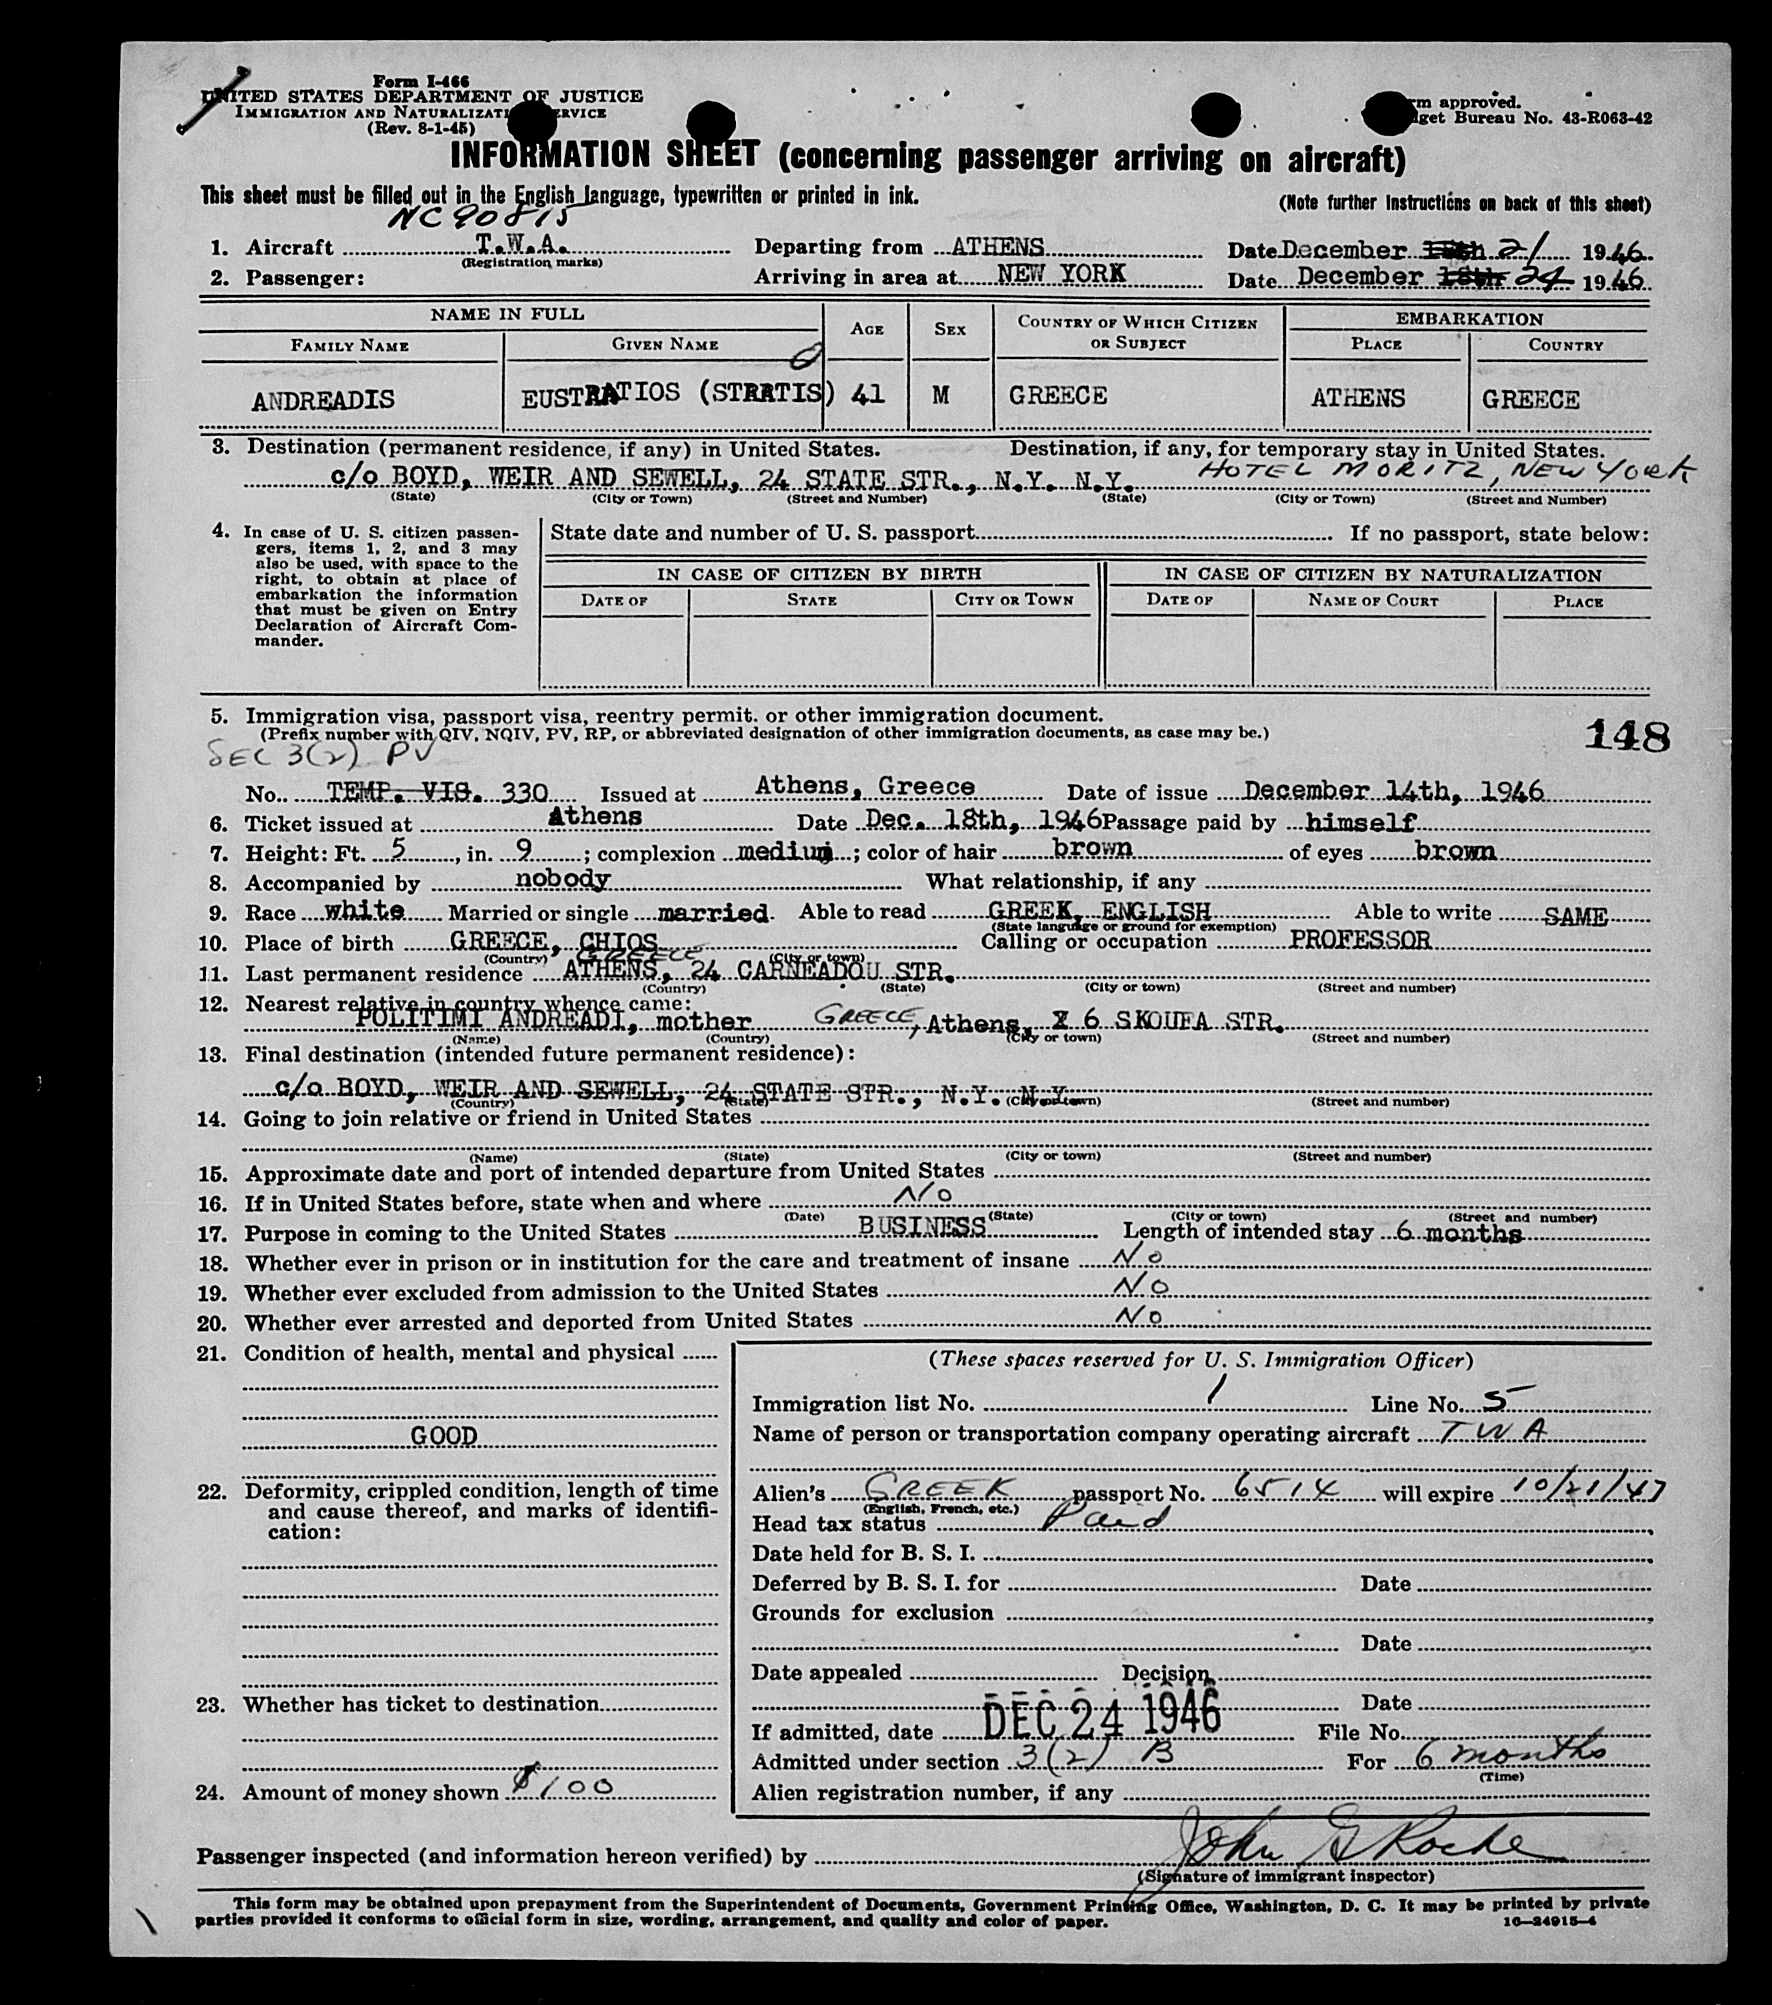 Form I-466
UNITED STATES DEPARTMENT OF JUSTICE
IMMIGRATION AND NATURALIZATI RVICE
(Rev. 8-1-45)
rm approved.
get Bureau No. 43-R063-42
INFORMATION SHEET (concerning passenger arriving on aircraft)
This sheet must be filled out in the English language, typewritten or printed in ink.
(Note further instructions on back of this sheet)
NC90815
1. Aircraft T.W.A. Departing from ATHENS Date December 21 1946
(Registration marks)
2. Passenger: Arriving in area at NEW YORK Date December 18th 24 1946
NAME IN FULL AGE SEX COUNTRY OF WHICH CITIZEN OR SUBJECT EMBARKATION
FAMILY NAME GIVEN NAME PLACE COUNTRY
ANDREADIS EUSTRATIOS (STRATIS) 41 M GREECE ATHENS GREECE
3. Destination (permanent residence, if any) in United States. Destination, if any, for temporary stay in United States.
c/o BOYD, WEIR AND SEWELL, 24 STATE STR., N.Y. N.Y. HOTEL MORITZ, NEW YORK
(State) (City or Town) (Street and Number) (State) (City or Town) (Street and Number)
4. In case of U. S. citizen passen-
gers, items 1, 2, and 3 may
also be used, with space to the
right, to obtain at place of
embarkation the information
that must be given on Entry
Declaration of Aircraft Com-
mander.
State date and number of U. S. passport If no passport, state below:
IN CASE OF CITIZEN BY BIRTH IN CASE OF CITIZEN BY NATURALIZATION
DATE OF STATE CITY OR TOWN DATE OF NAME OF COURT PLACE
5. Immigration visa, passport visa, reentry permit, or other immigration document.
(Prefix number with QIV, NQIV, PV, RP, or abbreviated designation of other immigration documents, as case may be.)
148
SEC 3(2) PV
No. TEMP. VIS. 330 Issued at Athens, Greece Date of issue December 14th, 1946
6. Ticket issued at Athens Date Dec. 18th, 1946 Passage paid by himself
7. Height: Ft. 5, in. 9; complexion medium; color of hair brown of eyes brown
8. Accompanied by nobody What relationship, if any
9. Race white Married or single married. Able to read GREEK, ENGLISH Able to write SAME
(State language or ground for exemption)
10. Place of birth GREECE, CHIOS Calling or occupation PROFESSOR
(Country) (City or town)
GREECE
11. Last permanent residence ATHENS, 24 CARNEADOU STR.
(Country) (State) (City or town) (Street and number)
12. Nearest relative in country whence came:
POLITIMI ANDREADI, mother GREECE, Athens, 6 SKOUFA STR.
(Name) (Country) (City or town) (Street and number)
13. Final destination (intended future permanent residence):
c/o BOYD, WEIR AND SEWELL, 24 STATE STR., N.Y. N.Y.
(Country) (State) (City or town) (Street and number)
14. Going to join relative or friend in United States
(Name) (State) (City or town) (Street and number)
15. Approximate date and port of intended departure from United States
16. If in United States before, state when and where No
(Date) (State) (City or town) (Street and number)
17. Purpose in coming to the United States BUSINESS Length of intended stay 6 months
18. Whether ever in prison or in institution for the care and treatment of insane No
19. Whether ever excluded from admission to the United States No
20. Whether ever arrested and deported from United States No
21. Condition of health, mental and physical
GOOD
22. Deformity, crippled condition, length of time
and cause thereof, and marks of identifi-
cation:
23. Whether has ticket to destination
24. Amount of money shown $100
(These spaces reserved for U. S. Immigration Officer)
Immigration list No. 1 Line No. 5
Name of person or transportation company operating aircraft TWA
Alien's GREEK passport No. 6514 will expire 10/21/47
(English, French, etc.)
Head tax status Paid
Date held for B. S. I.
Deferred by B. S. I. for Date
Grounds for exclusion
Date
Date appealed Decision
Date
If admitted, date DEC 24 1946 File No.
Admitted under section 3(2) B For 6 months
(Time)
Alien registration number, if any
Passenger inspected (and information hereon verified) by John G Roche
(Signature of immigrant inspector)
This form may be obtained upon prepayment from the Superintendent of Documents, Government Printing Office, Washington, D. C. It may be printed by private
parties provided it conforms to official form in size, wording, arrangement, and quality and color of paper.
16—24915-4